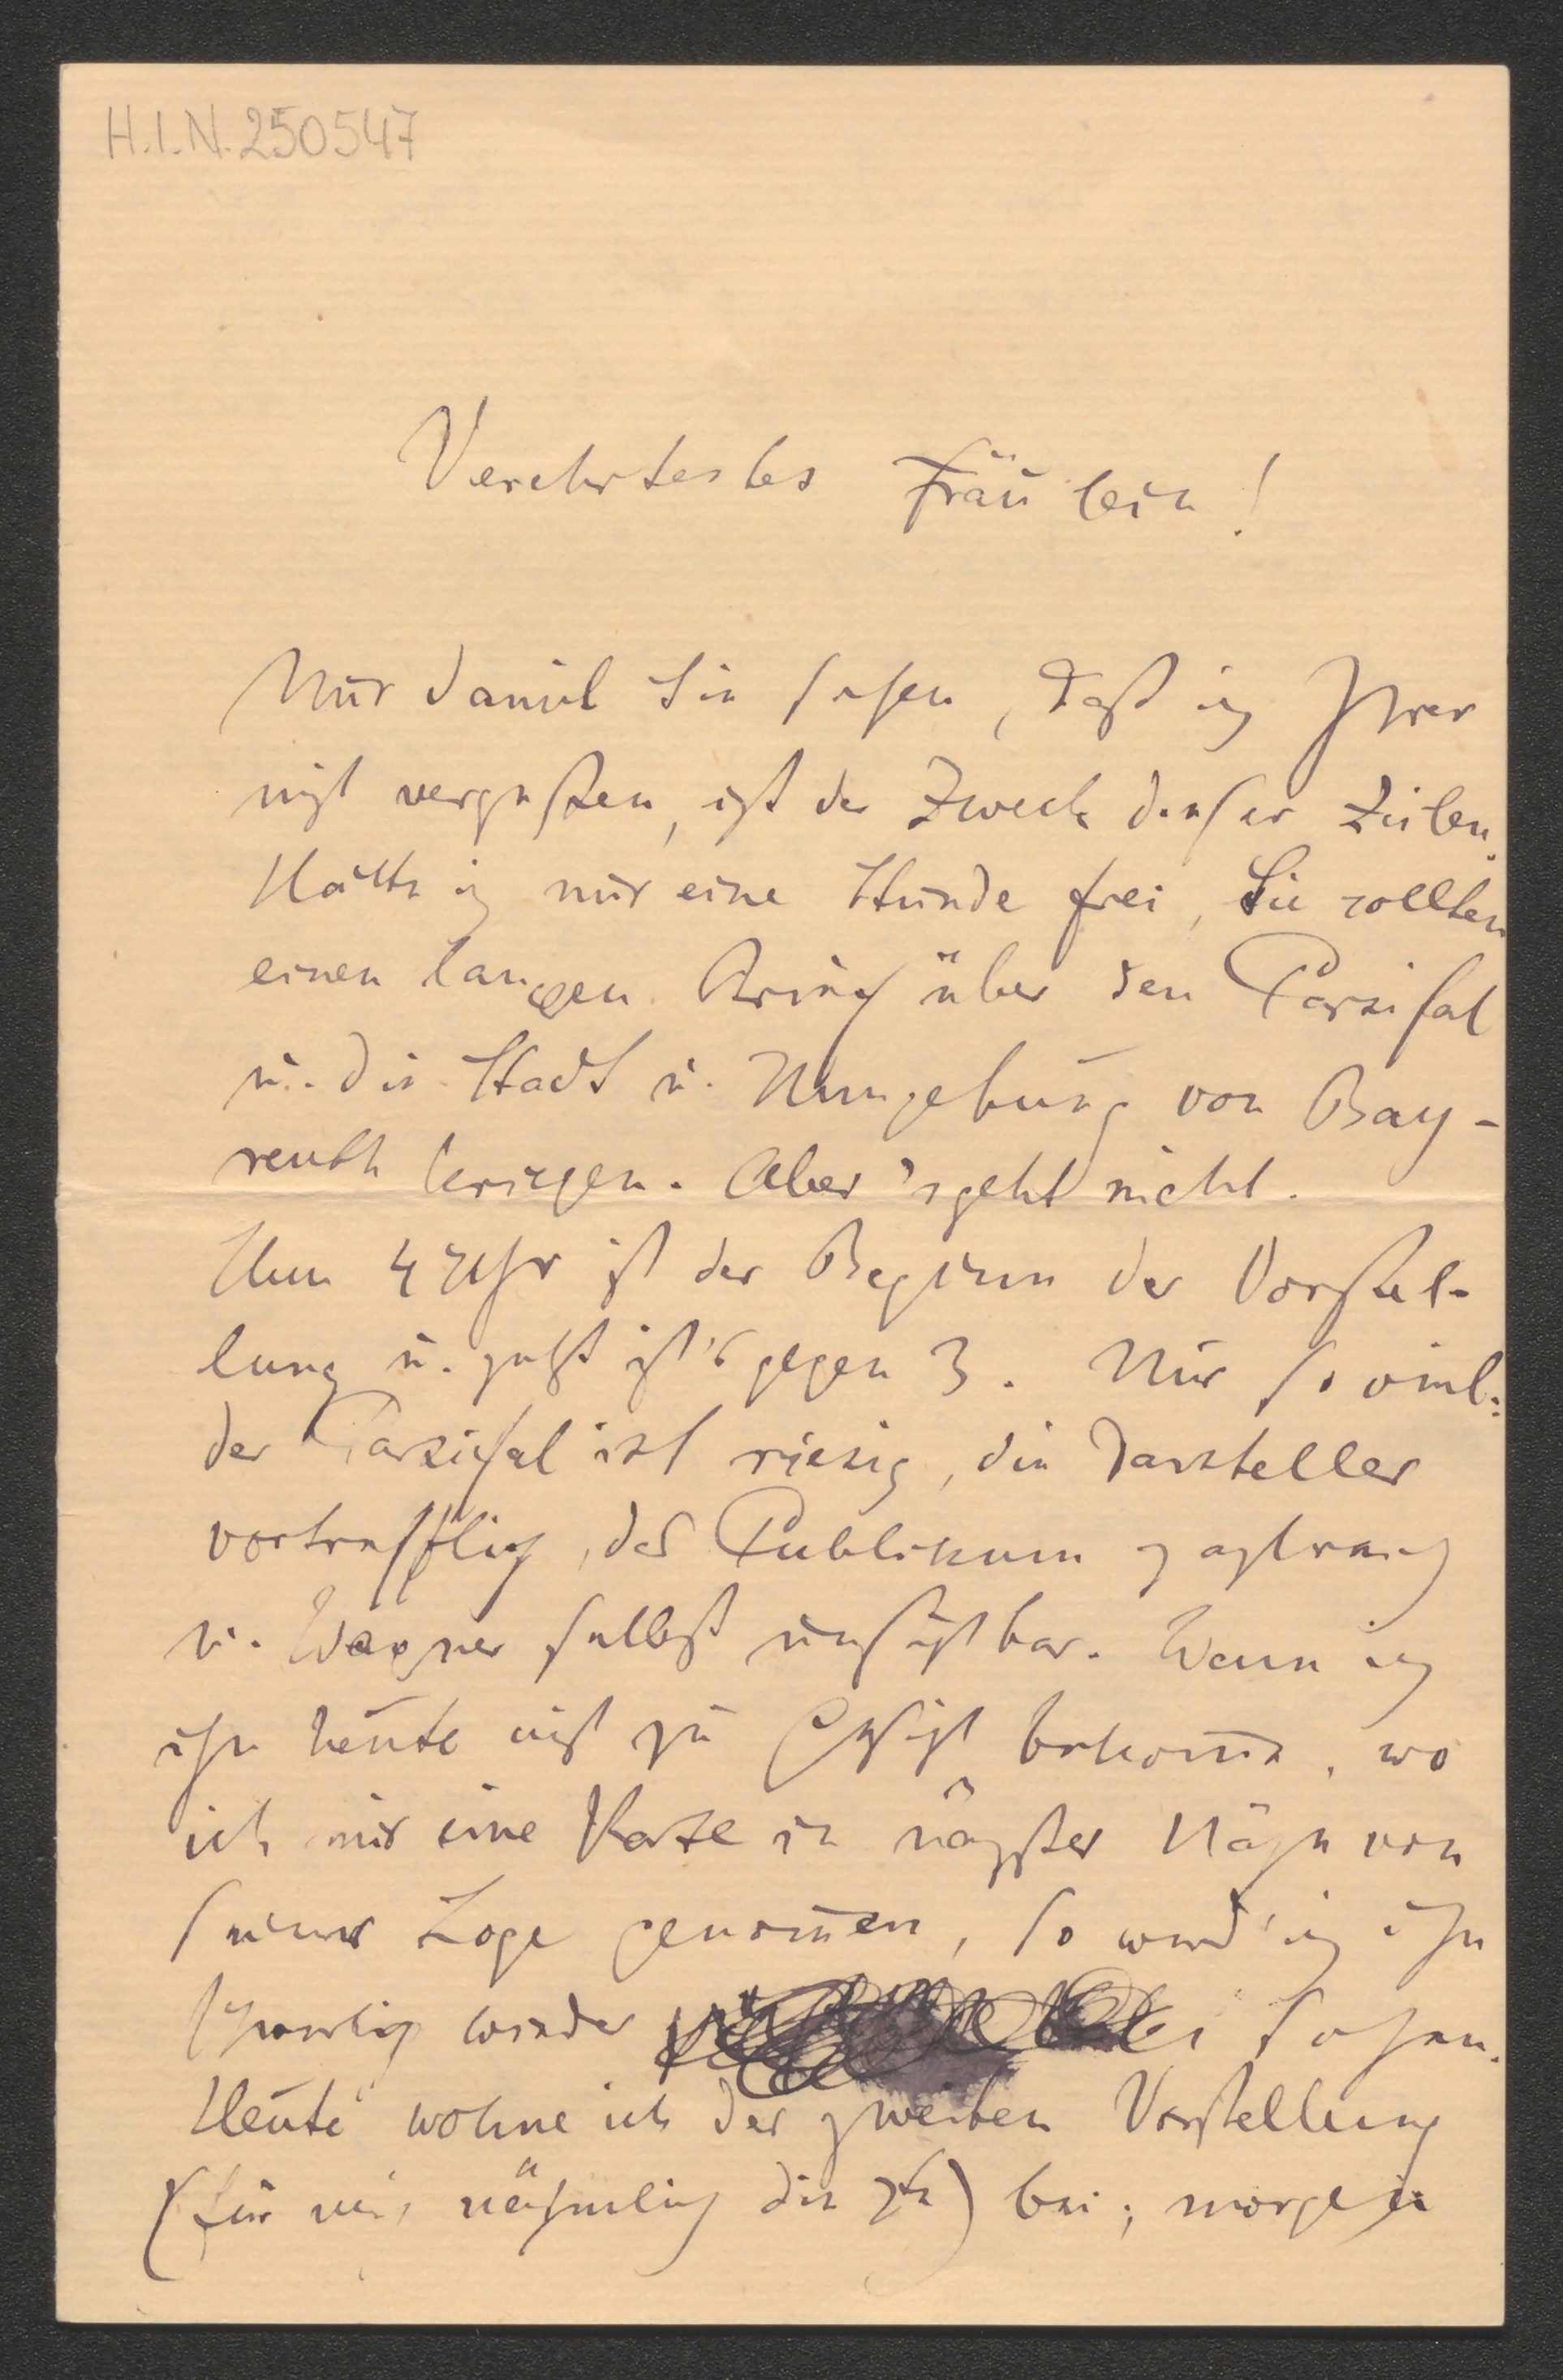 H.I.N. 250547
Verehrtestes Fräulein!
Nur damit Sie sehen, daß ich Ihrer
nicht vergessen, ist der Zweck dieser Zeilen.
Hätte ich nur eine Stunde frei, Sie sollten
einen langen Brief über den Parsifal
u. die Stadt u. Umgebung von Bay-
reuth kriegen. Aber 's geht nicht.
Um 4 Uhr ist der Beginn der Vorstel-
lung u. jetzt ist's gegen 3. Nur so viel:
der Parsifal ist riesig, die Darsteller
vortrefflich, das Publikum zahlreich
u. Wagner selbst unsichtbar. Wenn ich
ihn heute nicht zu Gesicht bekome, wo
ich mir eine Karte in nächster Nähe von
seiner Loge genomen, so werd' ich ihn
schwerlich wieder sehen.
Heute wohne ich der zweiten Vorstellung
(für mich nähmlich die 2te) bei; morgen